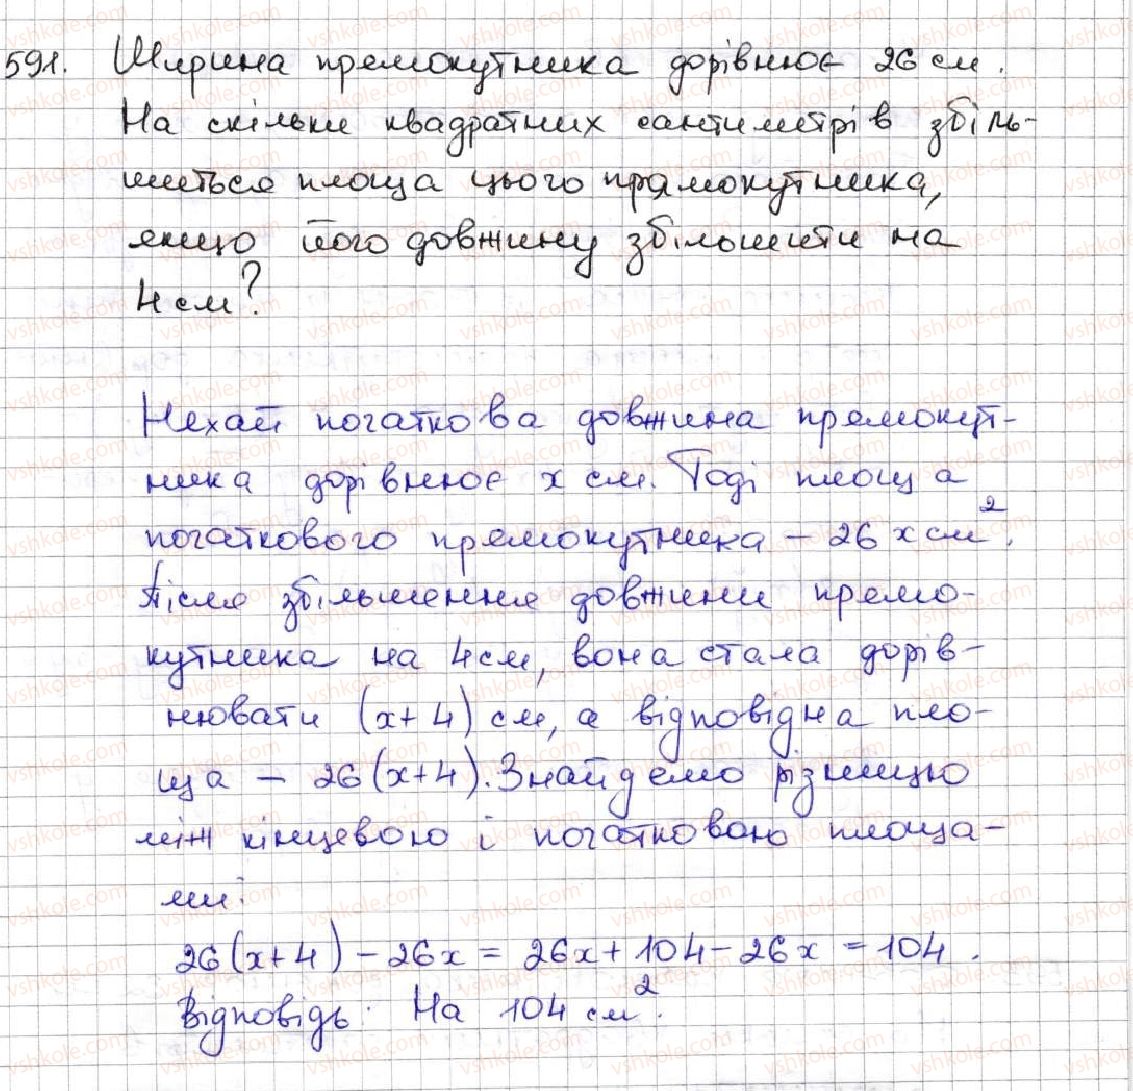 591. Ширина прямокутника дорівнює 26 см.
На скільки квадратних сантиметрів збіль-
шиться площа цього прямокутника,
якщо його довжину збільшити на
4 см?
Нехай початкова довжина прямокут-
ника дорівнює x см. Тоді площа
початкового прямокутника – 26 x см².
Після збільшення довжини прямо-
кутника на 4 см, вона стала дорів-
нювати (x+4) см, а відповідна пло-
ща – 26(x+4). Знайдемо різницю
між кінцевою і початковою площа-
ми:
26(x+4) – 26x = 26x + 104 – 26x = 104.
Відповідь: На 104 см².